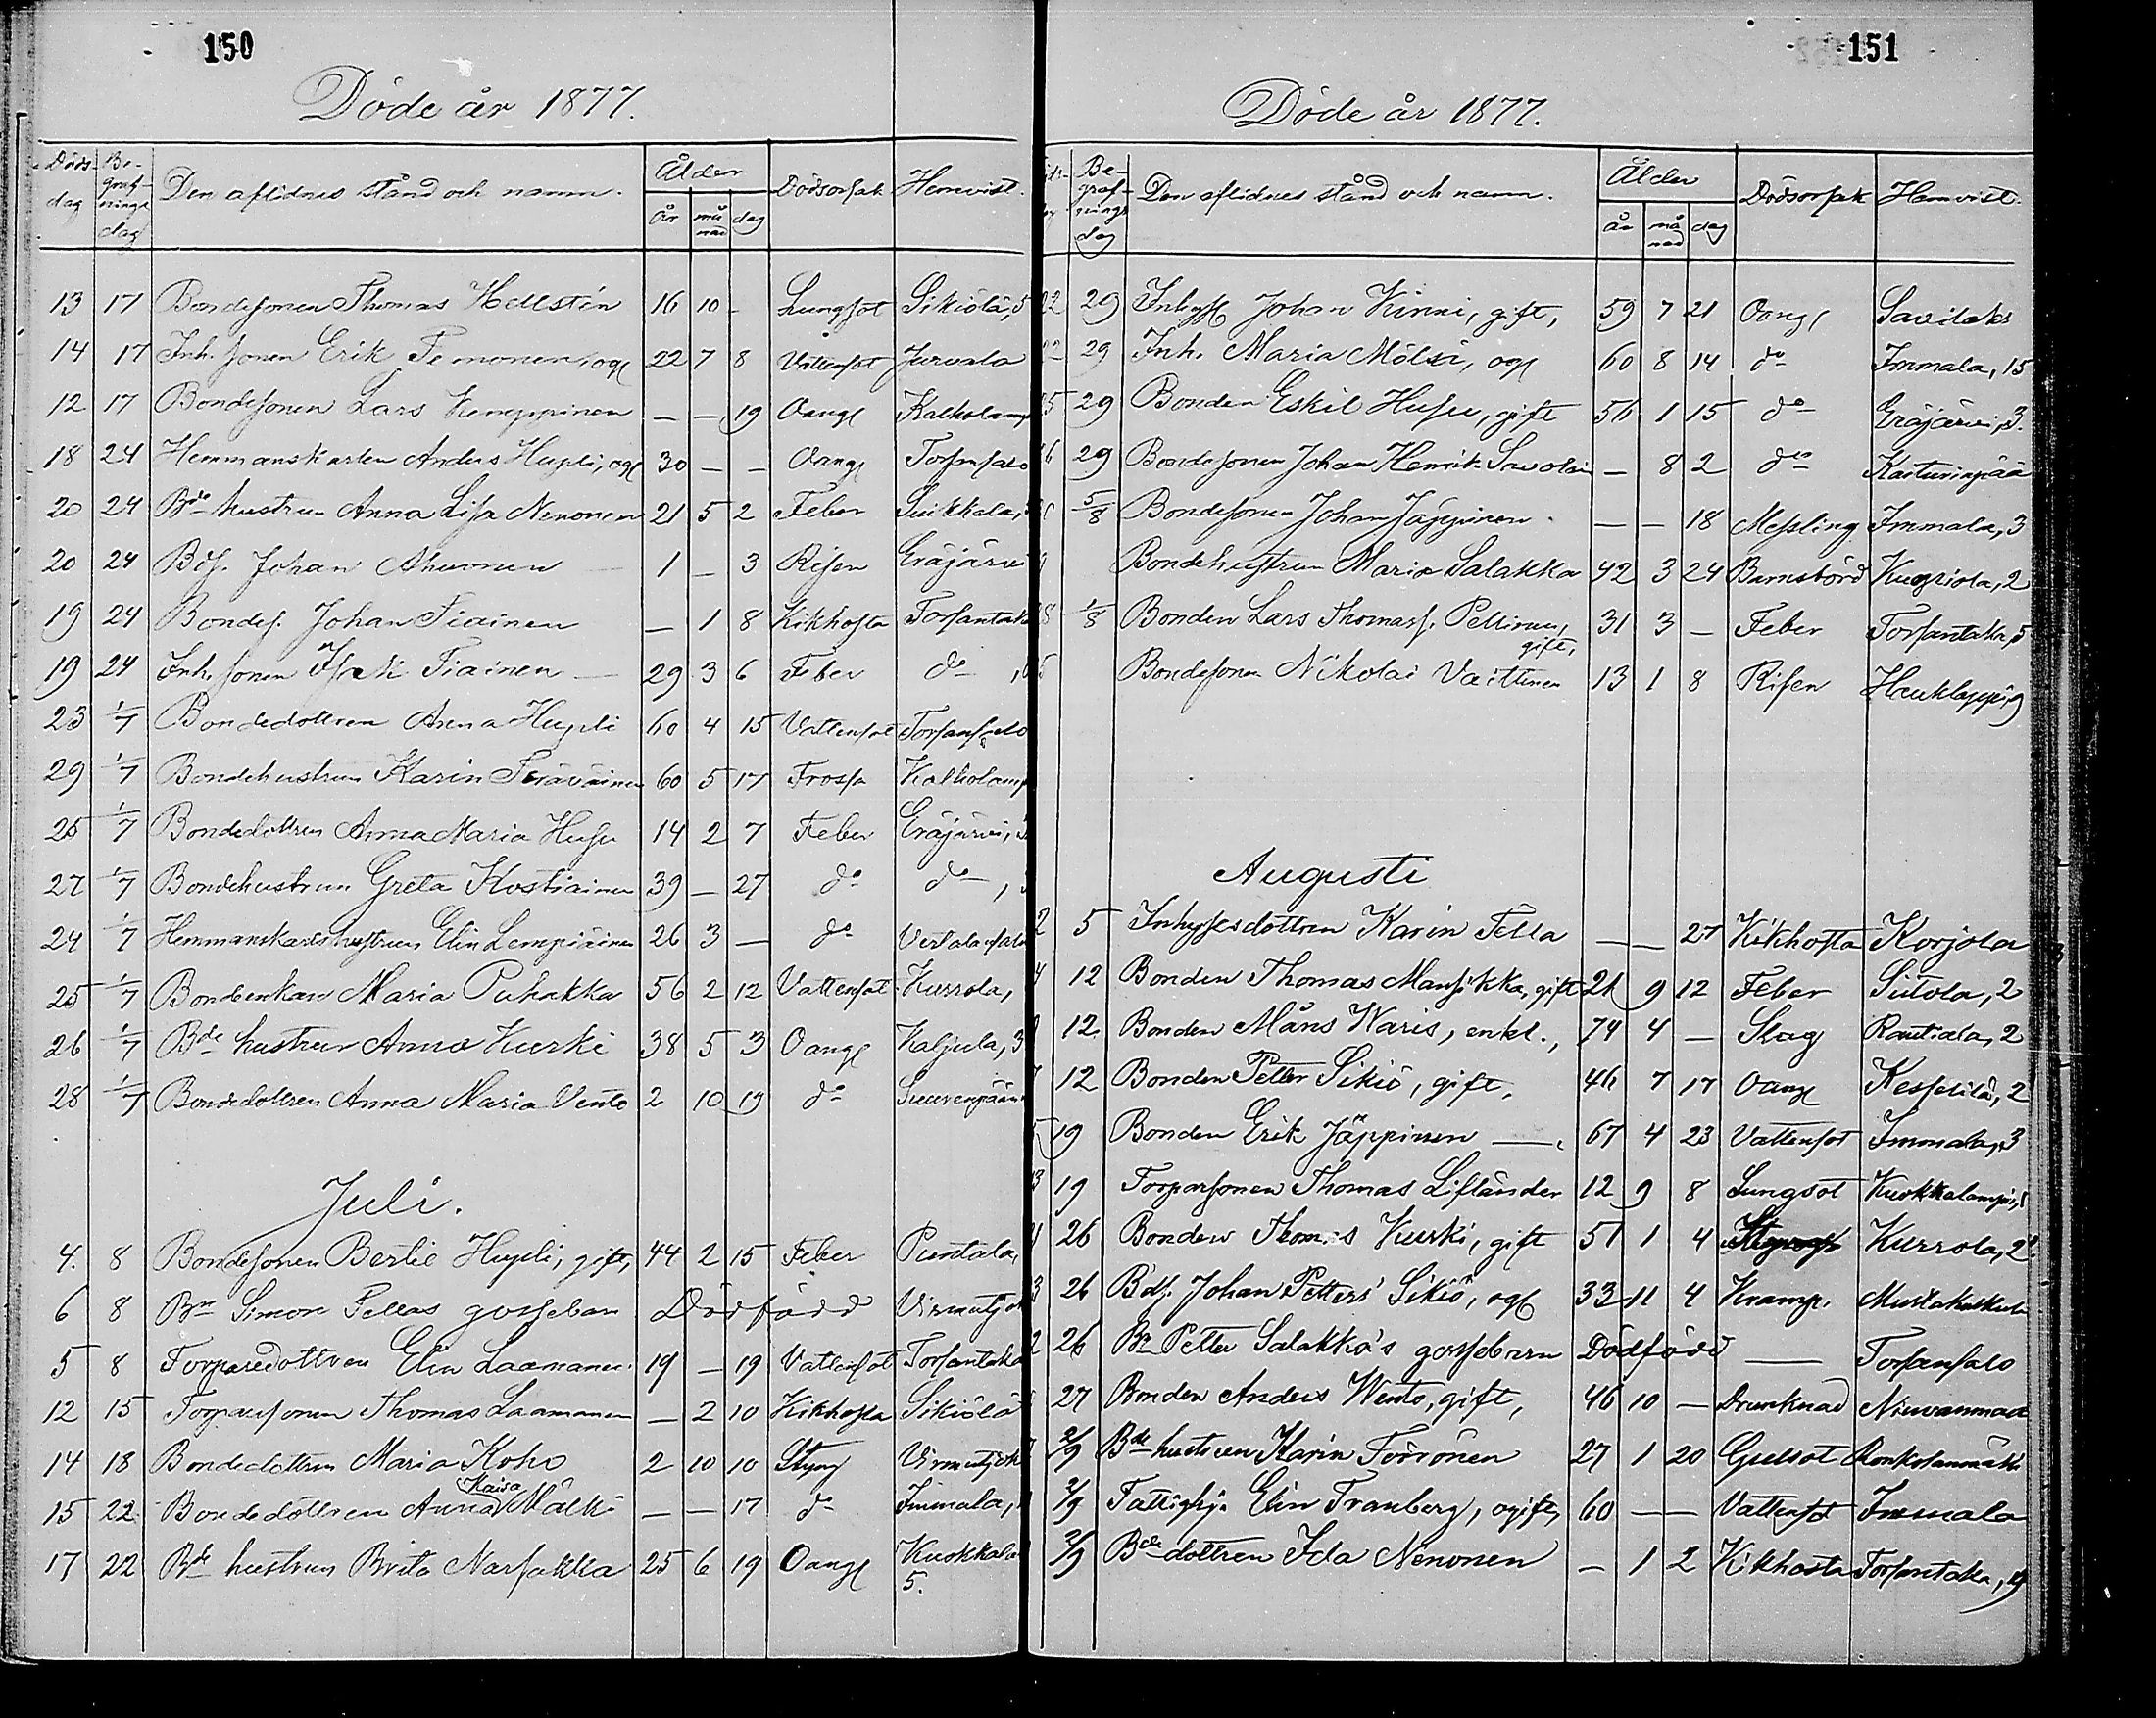 150
Döde år 1877.
Döds-dag Be-grafnings dag Den aflidnes stånd och namn. Ålder år månad dag Dödsorsak Hemvist.
13 17 Bondesonen Thomas Hellstén 16 10 - Lungsot Sikiölä, 5
14 17 Inh. sonen Erik Temonen, og. 22 7 8 Vattensot Jurvala
12 17 Bondesonen Lars Kemppinen — — 19 Oang. Kalkolamp
18 24 Hemmanskarlen Anders Hupli, og. 30 — — Oang. Torsansalo
20 24 Bde hustrun Anna Lisa Nenonen 21 5 2 Feber Suikkala,
20 24 Bdes. Johan Ahvonen — 1 — 3 Risen Eräjärvi
19 24 Bondes. Johan Tiainen — 1 8 Kikhosta Torsantaka
19 24 Inh. sonen Isak Tiainen — 29 3 6 Feber do
23 1/7 Bondedottren Anna Hupli 60 4 15 Vattensot Torsansalo
29 1/7 Bondehustrun Karin Teräväinen 60 5 17 Frossa Kalkolamp
25 1/7 Bondedottren Anna Maria Husu 14 2 7 Feber Eräjärvi,
27 1/7 Bondehustrun Greta Kostiainen 39 — 27 do do,
24 1/7 Hemmanskarlshustrun Elin Lempiäinen 26 3 — do
25 1/7 Bondeenkan Maria Puhakka 56 2 12 Vattensot Kurrola,
26 1/7 Bde hustrun Anna Kurki 38 5 3 Oang. Kaljula, 3
28 1/7 Bondedottren Anna Maria Vento 2 10 19 do
Juli.
4. 8 Bondesonen Bertil Hupli, gift, 44 2 15 Feber Puntala,
6 8 Bn Simon Pellas gossebarn Dödfödd Virmutjoki
5 8 Torparedottren Elin Laamanen 19 — 19 Vattensot Torsantaka
12 15 Torparsonen Thomas Laamanen — 2 10 Kikhosta Sikiölä
14 18 Bondedottren Maria Koho 2 10 10 Styng Virmutjoki
Kaisa
15 22 Bondedottren Anna Mälki — — 17 do Immala,
17 22 Bde hustrun Brita Narsakka 25 6 19 Oang. Kuokkala
5.
151
Döde år 1877.
Be-grafnings dag Den aflidnes stånd och namn. Ålder år månad dag Dödsorsak Hemvist.
22 29 Inhys. Johan Kinni, gift, 59 7 21 Oang. Savilaks
22 29 Inh. Maria Mölsi, og. 60 8 14 do Immala, 15
25 29 Bonden Eskil Husu, gift 56 1 15 do Eräjärvi, 3.
26 29 Bondesonen Johan Henrik Savolain — 8 2 do
5/8 Bondesonen Johan Jäppinen — — 18 Messling Immala, 3
Bondehustrun Maria Salakka 42 3 24 Barnsbörd
28 1/8 Bonden Lars Thomass. Pellinen, 31 3 — Feber Torsantaka, 5
gift,
Bondesonen Nikolai Vaittinen 13 1 8 Risen
Augusti
2 5 Inhysesdottren Karin Tella — — 27 Kikhosta Korjola
4 12 Bonden Thomas Mansikka, gift 21 9 12 Feber Siitola, 2
12 Bonden Måns Waris, enkl., 74 4 — Slag Rautiala, 2
12 Bonden Petter Sikiö, gift, 46 7 17 Oang. Kesselilä, 2
19 Bonden Erik Jäppinen —, 67 4 23 Vattensot Immala, 3
19 Torparsonen Thomas Lifländer 12 9 8 Lungsot Kuokkalampi,
26 Bonden Thomas Kurki, gift 51 1 4 Kurrola, 2
26 Bds. Johan Petters Sikiö, og. 33 11 4 Kramp.
26 Bn Petter Salakka's gossebarn Dödfödd — Torsansalo
27 Bonden Anders Wento, gift, 46 10 — Drunknad
2/9 Bde hustrun Karin Törrönen 27 1 20 Gulsot
2/9 Fattighj. Elin Tranberg, ogift, 60 — — Vattensot Immala
2/9 Bde dottren Ida Nenonen — 1 2 Kikhosta Torsantaka, 19